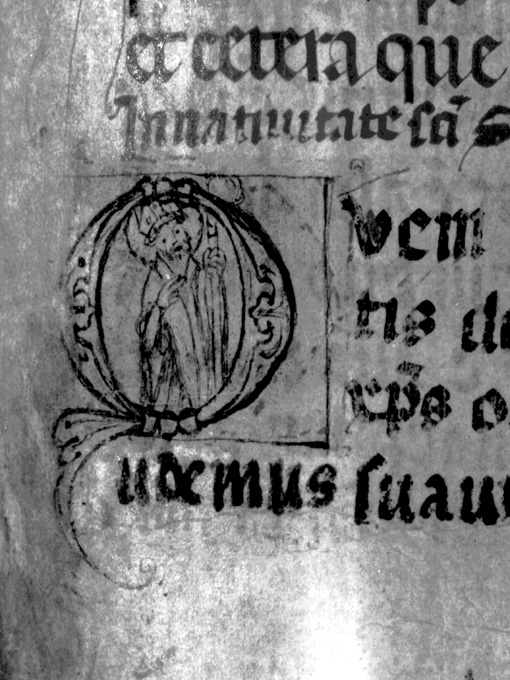 et cetera que
In natiuitate sc̄i S
Quem
tis de
xp̄s o
udemus suaui